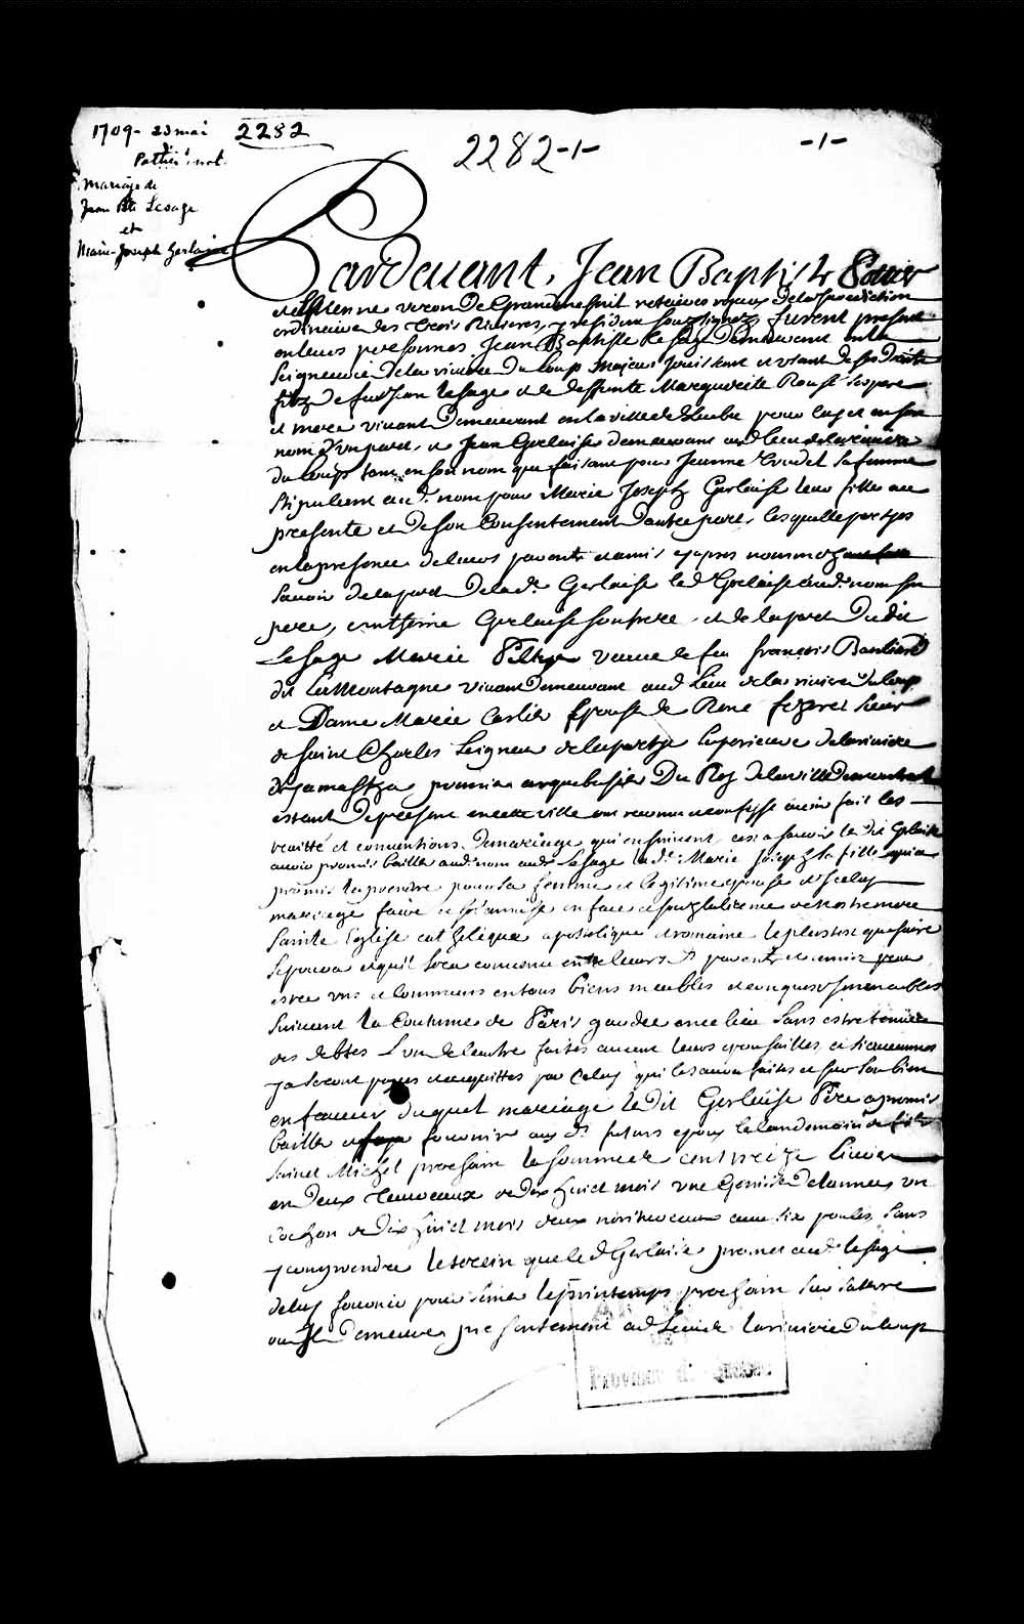 1709 - 23 mai
2282
Pothier not.
Mariage de
Jean Bte Lesage
et
Marie-Joseph Gerlaise
2282-1-
-1-
Pardevant Jean Baptiste Pottier
et Estienne veron De Grandmesnil notaires royaux de la Jurisdiction
ordinaire des trois Rivieres, y residens soubsignez furent presens
en leurs personnes Jean Baptiste Le sage Demeurant en la
Seigneurie De la riviere du Loup Majeur Jouissant et usant de ses droits
filz De feu Jean Lesage et de deffunte Marguerite Rousse ses pere
et mere vivant demeurant en la ville de Quebec pour luy et en son
nom D'une part, et Jean Gerlaise demeurant aud lieu de la riviere
du loup tant en son nom que faisant pour Jeanne trudel sa femme
stipulant aud. nom pour Marie Joseph Gerlaise leur fille a ce
presente et De son Consentement Dautre part, lesquelle partyes
en la presence de leurs parents et amis cy apres nommez
Savoir de la part De lad. Gerlaise led Gerlaise aud. nom son
pere, Gerlaise son frere, et de la part Dudit
Lesage Marie veuve de feu francois Banliard
dit La Montagne vivant demeurant aud Lieu de la riviere du Loup
et Dame Marie Carlier Epouse de Rene fezeret Sieur
de Saint Charles Seigneur de la partye superieure de la riviere
d'yamaska, premier arquebusier Du Roy de la ville de montreal
estant De present en cette ville ont reconnu et confesse avoir fait les
traitté et conventions De mariage qui ensuivent, cest a savoir le dit Gerlaise
avoir promis bailler aud nom aud Lesage lad. Marie Joseph sa fille qui a
promis la prendre pour sa femme et legitime epouse et Iceluy
mariage faire et solannise en face de nostre mere
Sainte Eglise catholique apostolique et romaine le plustost que faire
se poura et quil sera convenu entre leursd parents et amis pour
estre uns et Communs en tous biens meubles et conquest Immeubles
suivant la Coutume de Paris gardée en ce lieu Sans estre tenus
des debtes L'un de lautre faites avant leurs epousailles, et si aucunnes
y a seront payees et acquittes par Celuy qui les aura faites et sur son bien
en faveur duquel mariage le Dit Gerlaise Père a promis
bailler et fournir aux ds futurs epoux le landemain de feste
Saint Michel prochain la somme de cent treize livres
en Deux Tauraux de dix huict mois une Genisse de lannee un
Cochon de Dix huict mois deux avec six poules, Sans
y comprendre le terrein que le d Gerlaise promet aud. lesage
de luy fournir pour semer le printemps prochain sur sa terre
ou Il demeure presentement aud Lieu de la riviere du loup